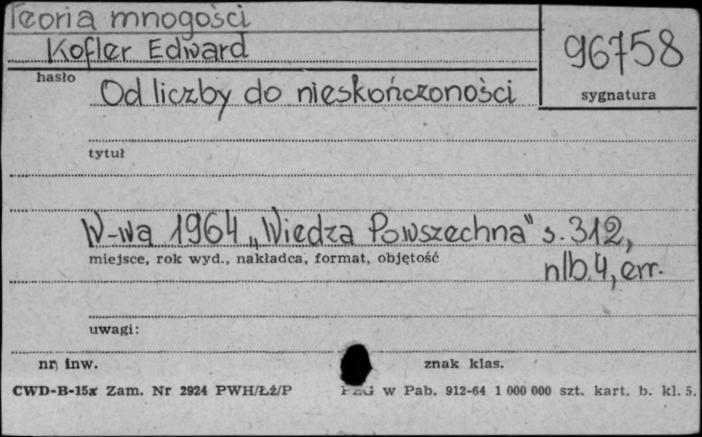 Teoria mnogości
Kofler Edward
96758
hasło
sygnatura
Od liczby do nieskończoności
tytuł
W-wa 1964 „Wiedza Powszechna" s. 312,
miejsce, rok wyd., nakładca, format, objętość
nlb. 4, err.
uwagi:
nr. inw.
znak klas.
CWD-B-15a Zam. Nr 2924 PWH/Łź/P
w Pab. 912-64 1 000 000 szt. kart. b. kl. 5.